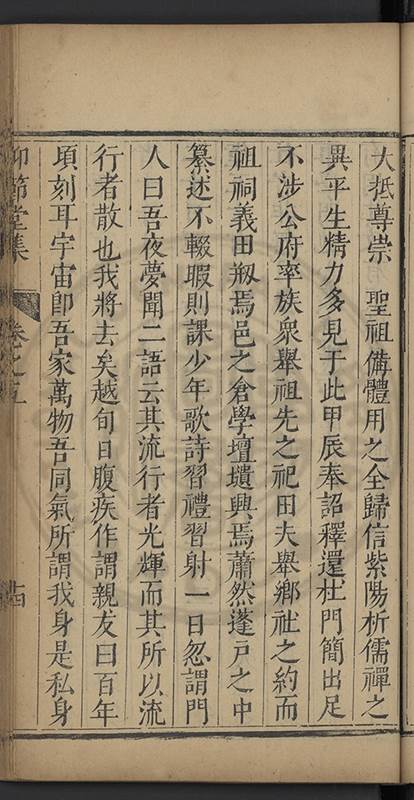 大抵尊崇 聖祖備體用之全歸信紫陽析儒禪之
異平生精力多見于此甲辰奉詔釋還杜門簡出足
不涉公府率族衆舉祖先之祀田夫舉鄉社之約而
祖祠義田剏焉邑之倉學壇壝興焉蕭然蓬戶之中
纂述不輟暇則課少年歌詩習禮習射一日忽謂門
人曰吾夜夢聞二語云其流行者光輝而其所以流
行者散也我將去矣越旬日腹疾作謂親友曰百年
頃刻耳宇宙卽吾家萬物吾同氣所謂我身是私身
仰節堂集 卷之五 十四